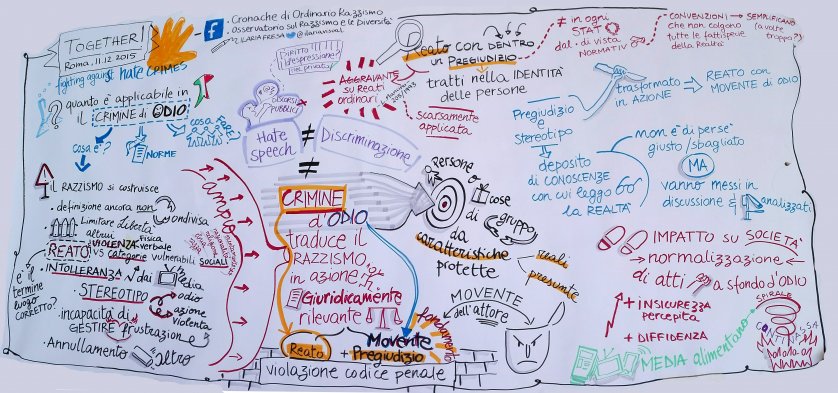 TOGETHER!
Roma, 11.12 2015
fighting against hate CRIMES
f
• Cronache di Ordinario Razzismo
• Osservatorio sul Razzismo e le Diversità
ILARIAFRESA @ilariavisual
quanto è applicabile in
il CRIMINE di ODIO
?
cosa è?
NORME
cosa FARE?
il RAZZISMO si costruisce
• definizione ancora non condivisa
Limitare Libertà
altrui
REATO
VIOLENZA fisica
verbale
vs categorie vulnerabili SOCIALI
INTOLLERANZA
dai media
STEREOTIPO
odio
azione
violenta
è il
termine
CORRETTO?
• incapacità di
GESTIRE frustrazione
• Annullamento
altro
ampio
DIRITTO
d'espressione?
DISCORSI
PUBBLICI
Hate
speech
≠
Discriminazione
≠
AGGRAVANTE
su Reati
ordinari
scarsamente
applicata
Reato con DENTRO
un PREGIUDIZIO
tratti nella IDENTITÀ
delle persone
≠ in ogni
STATO
dal • di vista
NORMATIVO
CONVENZIONI → SEMPLIFICANO
che non colgono
tutte le fattispecie
della Realtà
(a volte
troppo?)
trasformato
in AZIONE
REATO con
MOVENTE di ODIO
Pregiudizio
e
Stereotipo
deposito
di CONOSCENZE
con cui leggo
la REALTÀ
non è di per sé
giusto/sbagliato
MA
vanno messi in
discussione &
analizzati
CRIMINE
d'ODIO
traduce il
RAZZISMO
in azione
Giuridicamente
rilevante
Reato
Movente
+ Pregiudizio
fondamento
violazione codice penale
Persone
cose
gruppo
di
da
caratteristiche
protette
reali
presunte
MOVENTE
dell'attore
IMPATTO su SOCIETÀ
→ normalizzazione
di atti a sfondo d'ODIO
+ INSICUREZZA
percepita
+ DIFFIDENZA
SPIRALE
CONTINUA
MEDIA alimentano